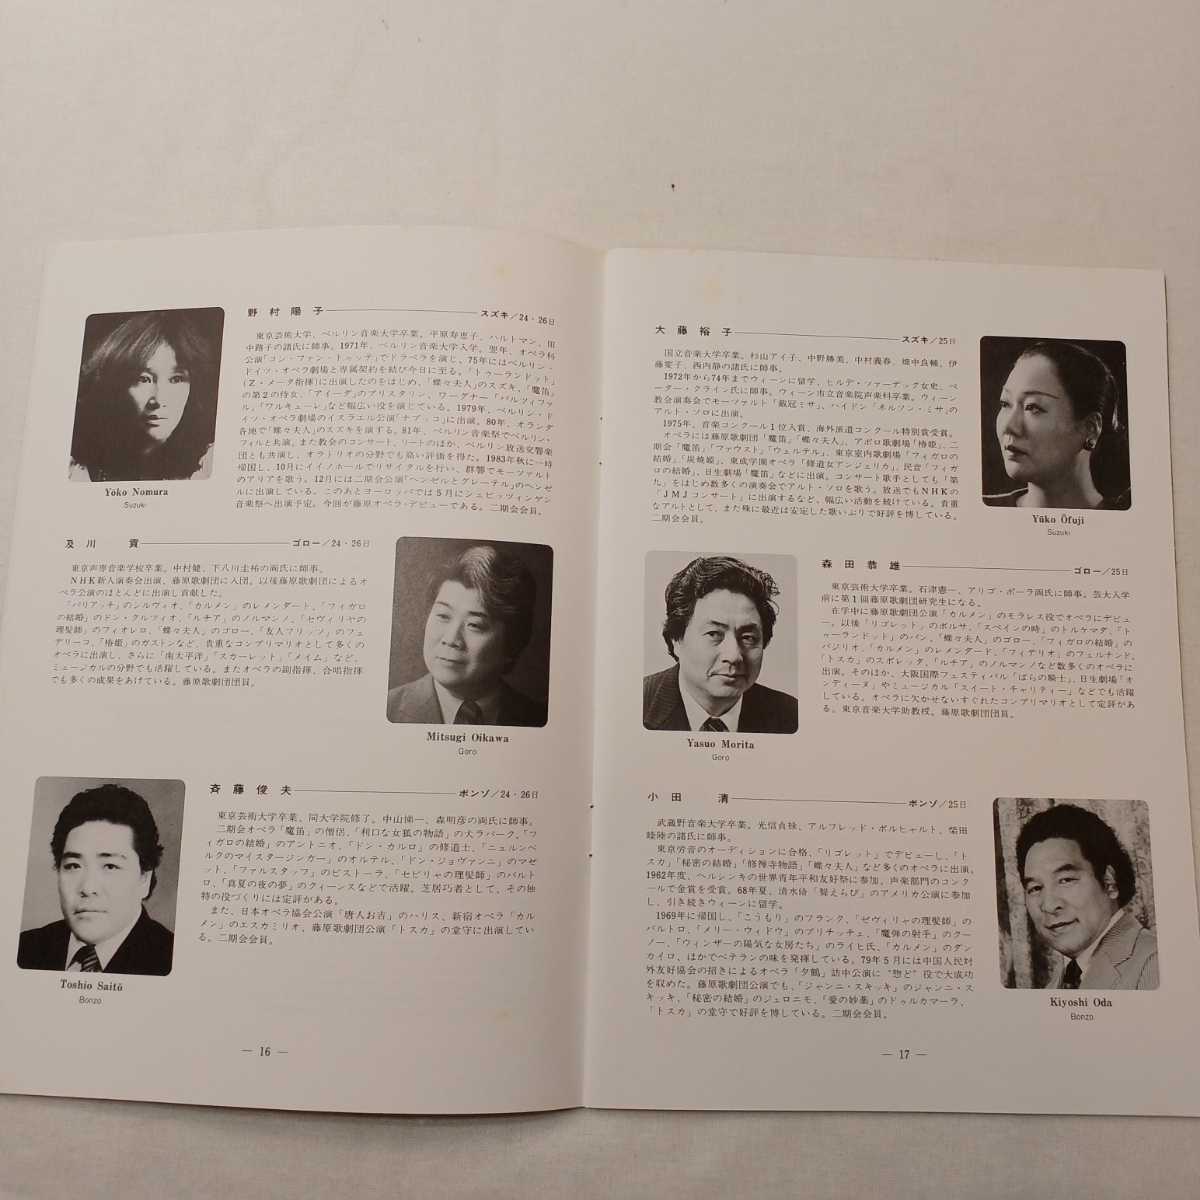 野村陽子 スズキ/24・26日
東京芸術大学、ベルリン音楽大学卒業。平原寿恵子、ハルトマン、田
中路子の諸氏に師事。1971年、ベルリン音楽大学入学。翌年、オペラ科
公演「コシ・ファン・トゥッテ」でドラベラを演じ、75年にはベルリン・
ドイツ・オペラ劇場と専属契約を結び今日に至る。「トゥーランドット」
(Z・メータ指揮)に出演したのをはじめ、「蝶々夫人」のスズキ、「魔笛」
の第2の侍女、「アイーダ」のプリスタリン、ワーグナー「パルツィファ
ル」、「ワルキューレ」など幅広い役を演じている。1979年、ベルリン・ド
イツ・オペラ劇場のイスラエル公演「ナブッコ」に出演。80年、オランダ
各地で「蝶々夫人」のスズキを演する。81年、ベルリン音楽祭でベルリン・
フィルと共演。また教会のコンサート、リートのほか、ベルリン放送交響楽
団とも共演し、オラトリオの分野でも高い評価を得た。1983年秋に一時
帰国し、10月にイイノホールでリサイタルを行い、群響でモーツァルト
のアリアを歌う。12月には二期会公演「ヘンゼルとグレーテル」のヘンゼ
ルに出演している。このあとヨーロッパでは5月にシュビッツィンゲン
音楽祭へ出演予定。今回が藤原オペラ・デビューである。二期会会員。
Yoko Nomura
Suzuki
及川貢 ゴロー/24・26日
東京声専音楽学校卒業。中村健、下八川圭祐の両氏に師事。
NHK新人演奏会出演、藤原歌劇団に入団。以後藤原歌劇団によるオ
ペラ公演のほとんどに出演し貢献した。
「パリアッチ」のシルヴィオ、「カルメン」のレメンダート、「フィガロ
の結婚」のドン・クルツィオ、「ルチア」のノルマンノ、「セヴィリヤの
理髪師」のフィオレロ、「蝶々夫人」のゴロー、「友人フリッツ」のフェ
デリーコ、「椿姫」のガストンなど、貴重なコンプリマリオとして多くの
オペラに出演し、さらに「南太平洋」「スカーレット」「メイム」など、
ミュージカルの分野でも活躍している。またオペラの副指揮、合唱指揮
でも多くの成果をあげている。藤原歌劇団団員。
Mitsugi Oikawa
Goro
斉藤俊夫 ボンゾ/24・26日
東京芸術大学卒業、同大学院修了。中山悌一、森明彦の両氏に師事。
二期会オペラ「魔笛」の僧侶、「利口な女狐の物語」の犬ラパーク、「フ
ィガロの結婚」のアントニオ、「ドン・カルロ」の修道士、「ニュルンベ
ルクのマイスタージンガー」のオルテル、「ドン・ジョヴァンニ」のマゼ
ット、「ファルスタッフ」のピストーラ、「セビリャの理髪師」のバルト
ロ、「真夏の夜の夢」のクィーンスなどで活躍。芝居巧者として、その独
特の役づくりには定評がある。
また、日本オペラ協会公演「唐人お吉」のハリス、新宿オペラ「カル
メン」のエスカミリオ、藤原歌劇団公演「トスカ」の堂守に出演してい
る。二期会会員。
Toshio Saitō
Bonzo
— 16 —
大藤裕子 スズキ/25日
国立音楽大学卒業。杉山アイ子、中野勝美、中村義春、畑中良輔、伊
藤亘子、西内静の諸氏に師事。
1972年から74年までウィーンに留学、ヒルデ・ツァーデック女史、ペ
ーター・クライン氏に師事。ウィーン市立音楽院声楽科卒業。ウィーン
教会演奏会でモーツァルト「戴冠ミサ」、ハイドン「ネルソン・ミサ」の
アルト・ソロに出演。
1975年、音楽コンクール1位入賞、海外派遣コンクール特別賞受賞。
オペラには藤原歌劇団「魔笛」「蝶々夫人」、アポロ歌劇場「椿姫」、二
期会「魔笛」「ファウスト」「ウェルテル」、東京室内歌劇場「フィガロの
結婚」「炭焼姫」、東成学園オペラ「修道女アンジェリカ」、民音「フィガ
ロの結婚」、日生劇場「魔笛」などに出演。コンサート歌手としても「第
九」をはじめ数多くの演奏会でアルト・ソロを歌う。放送でもNHKの
「JMJコンサート」に出演するなど、幅広い活動を続けている。貴重
なアルトとして、また殊に最近は安定した歌いぶりで好評を博している。
二期会会員。
Yūko Ōfuji
Suzuki
森田恭雄 ゴロー/25日
東京芸術大学卒業。石津憲一、アリゴ・ポーラ両氏に師事。芸大入学
前に第1回藤原歌劇団研究生になる。
在学中に藤原歌劇団公演「カルメン」のモラレス役でオペラにデビュ
ー。以後「リゴレット」のボルサ、「スペインの時」のトルケマダ、「ト
ゥーランドット」のパン、「蝶々夫人」のゴロー、「フィガロの結婚」の
バジリオ、「カルメン」のレメンダード、「フィデリオ」のフェルナンド、
「トスカ」のスポレッタ、「ルチア」のノルマンノなど数多くのオペラに
出演。そのほか、大阪国際フェスティバル「ばらの騎士」、日生劇場「オ
ンディーヌ」やミュージカル「スイート・チャリティー」などでも活躍
している。オペラに欠かせないすぐれたコンプリマリオとして定評があ
る。東京音楽大学助教授。藤原歌劇団団員。
Yasuo Morita
Goro
小田清 ボンゾ/25日
武蔵野音楽大学卒業。光信貞禄、アルフレッド・ボルヒャルト、柴田
睦陸の諸氏に師事。
東京労音のオーディションに合格、「リゴレット」でデビューし、「ト
スカ」「秘密の結婚」「修禅寺物語」「蝶々夫人」など多くのオペラに出演。
1962年度、ヘルシンキの世界青年平和友好祭に参加、声楽部門のコンク
ールで金賞を受賞。68年夏、清水脩「聟えらび」のアメリカ公演に参加
し、引き続きウィーンに留学。
1969年に帰国し、「こうもり」のフランク、「ゼヴィリャの理髪師」の
バルトロ、「メリー・ウィドウ」のプリチッチェ、「魔弾の射手」のクー
ノー、「ウィンザーの陽気な女房たち」のライヒ氏、「カルメン」のダン
カイロ、ほかでベテランの味を発揮している。79年5月には中国人民対
外友好協会の招きによるオペラ「夕鶴」訪中公演に“惣ど”役で大成功
を収めた。藤原歌劇団公演でも、「ジャンニ・スキッキ」のジャンニ・ス
キッキ、「秘密の結婚」のジェロニモ、「愛の妙薬」のドゥルカマーラ、
「トスカ」の堂守で好評を博している。二期会会員。
Kiyoshi Oda
Bonzo
— 17 —